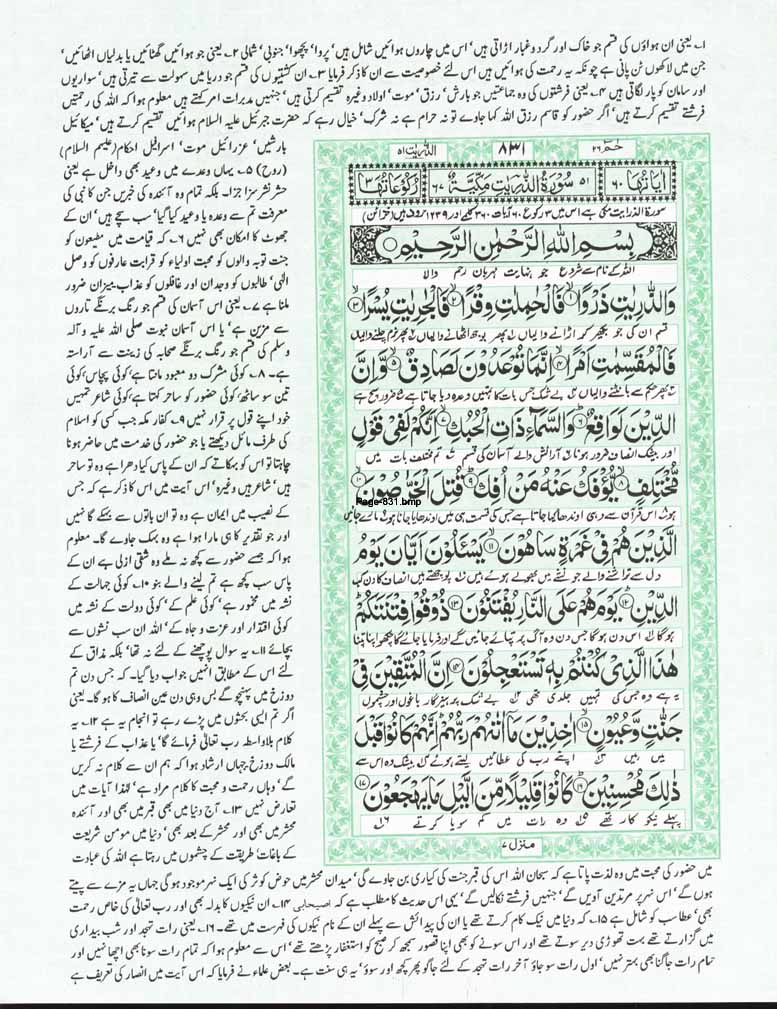 ۱۔ یعنی ان ہواؤں کی قسم جو خاک اور گرد و غبار اڑاتی ہیں' اس میں چاروں ہوائیں شامل ہیں' پروا' پچھوا' جنوبی' شمالی ۲۔ یعنی جو ہوائیں گھٹائیں یا بدلیاں اٹھائیں'
جن میں لاکھوں ٹن پانی ہے چونکہ یہ رحمت کی ہوائیں ہیں اس لئے خصوصیت سے ان کا ذکر فرمایا ۳۔ ان کشتیوں کی قسم جو دریا میں سہولت سے تیرتی ہیں' سواریوں
اور سامان کو پار لگاتی ہیں ۴۔ یعنی فرشتوں کی وہ جماعتیں جو بارش' رزق' موت' اولاد وغیرہ تقسیم کرتی ہیں' جنہیں مدبرات امر کہتے ہیں معلوم ہوا کہ اللہ کی رحمتیں
فرشتے تقسیم کرتے ہیں' اگر حضور کو قاسم رزق اللہ کہا جاوے تو نہ حرام ہے نہ شرک' خیال رہے کہ حضرت جبرئیل علیہ السلام ہوائیں تقسیم کرتے ہیں' میکائیل
بارشیں' عزرائیل موت' اسرافیل احکام (علیہم السلام)
(روح) ۵۔ یہاں وعدے میں وعید بھی داخل ہے یعنی
حشر نشر سزا جزا۔ بلکہ تمام وہ آئندہ کی خبریں جن کا نبی کی
معرفت تم سے وعدہ یا وعید کیا گیا' سب سچے ہیں' ان کے
جھوٹ کا امکان بھی نہیں ۶۔ کہ قیامت میں مطیعوں کو
جنت توبہ والوں کو محبت اولیاء کو قرابت عارفوں کو وصل
الٰہی' طالبوں کو وجدان اور غافلوں کو عذاب میزان ضرور
ملنا ہے ۷۔ یعنی اس آسمان کی قسم جو رنگ برنگے تاروں
سے مزین ہے' یا اس آسمان نبوت صلی اللہ علیہ و آلہ
وسلم کی قسم جو رنگ برنگے صحابہ کی زینت سے آراستہ
ہے۔ ۸۔ کوئی مشرک دو معبود مانتا ہے' کوئی پچاس' کوئی
تین سو ساٹھ' کوئی حضور کو ساحر کہتا ہے' کوئی شاعر تمہیں
خود اپنے قول پر قرار نہیں ۹۔ کفار مکہ جب کسی کو اسلام
کی طرف مائل دیکھتے یا جو حضور کی خدمت میں حاضر ہونا
چاہتا تو اس کو بہکاتے کہ ان کے پاس کیا دھرا ہے وہ تو ساحر
ہیں' شاعر ہیں وغیرہ' اس آیت میں اس کا ذکر ہے کہ جس
کے نصیب میں ایمان ہے وہ تو ان باتوں سے بہکے گا نہیں
اور جو تقدیر کا ہی مارا ہوا ہے وہ بہک جاوے گا۔ معلوم
ہوا کہ جسے حضور سے کچھ نہ ملے وہ شقی ازلی ہے ان کے
پاس سب کچھ ہے تم لینے والے بنو ۱۰۔ کوئی جہالت کے
نشہ میں مخمور ہے' کوئی علم کے' کوئی دولت کے نشہ میں
کوئی اقتدار اور عزت و جاہ کے' اللہ ان سب نشوں سے
بچائے ۱۱۔ یہ سوال پوچھنے کے لئے نہ تھا' بلکہ مذاق کے
لئے اس کے مطابق انہیں جواب دیا گیا۔ کہ جس دن تم
دوزخ میں پہنچو گے بس وہی دن عین انصاف کا ہو گا۔ یعنی
اگر تم ایسی بحثوں میں پڑے رہے تو انجام یہ ہے ۱۲۔ یہ
کلام بلاواسطہ رب تعالٰی فرمائے گا' یا عذاب کے فرشتے یا
مالک دوزخ جہاں ارشاد ہوا کہ ہم ان سے کلام نہ کریں
گے' وہاں رحمت و محبت کا کلام مراد ہے' لہٰذا آیات میں
تعارض نہیں ۱۳۔ آج دنیا میں بھی قبر میں بھی' اور آئندہ
محشر میں بھی اور محشر کے بعد بھی' دنیا میں مومن شریعت
کے باغات' طریقت کے چشموں میں رہتا ہے اللہ کی عبادت
حٰمٓ ۲۶ ۸۳۱ الذّٰریٰت ۵۱
اٰیاتُہَا ۶۰ ۵۱ سُوْرَۃُ الذّٰرِیٰتِ مَکِّیَّۃٌ ۶۷ رُکُوْعَاتُہَا ۳
سورۃ الذاریات مکی ہے اس میں ۳ رکوع ۶۰ آیات ۳۶۰ کلمے اور ۱۲۳۹ حروف ہیں (خزائن)
بِسْمِ اللّٰهِ الرَّحْمٰنِ الرَّحِیْمِ
اللہ کے نام سے شروع جو نہایت مہربان رحم والا
وَالذّٰرِیٰتِ ذَرْوًا ۙ۱ فَالْحٰمِلٰتِ وِقْرًا ۙ۲ فَالْجٰرِیٰتِ یُسْرًا ۙ۳
قسم ان کی جو بکھیر کر اڑانے والیاں پھر بوجھ اٹھانے والیاں پھر نرم چلنے والیاں
فَالْمُقَسِّمٰتِ اَمْرًا ۙ۴ اِنَّمَا تُوْعَدُوْنَ لَصَادِقٌ ۙ۵ وَّاِنَّ
پھر حکم سے بانٹنے والیاں بے شک جس بات کا تمہیں وعدہ دیا جاتا ہے ضرور سچ ہے
الدِّیْنَ لَوَاقِعٌ ؕ۶ وَالسَّمَآءِ ذَاتِ الْحُبُكِ ۙ۷ اِنَّكُمْ لَفِیْ قَوْلٍ
اور بیشک انصاف ضرور ہونا آرائش والے آسمان کی قسم تم مختلف بات میں
مُّخْتَلِفٍ ۙ۸ یُّؤْفَكُ عَنْهُ مَنْ اُفِكَ ؕ۹ قُتِلَ الْخَرّٰصُوْنَ ۙ۱۰
ہو اس قرآن سے وہی اوندھا کیا جاتا ہے جس کی قسمت ہی میں اوندھایا جانا ہو مارے جائیں
Page-831.bmp
الَّذِیْنَ هُمْ فِیْ غَمْرَةٍ سَاهُوْنَ ۙ۱۱ یَسْـَٔلُوْنَ اَیَّانَ یَوْمُ
دل سے تراشنے والے جو نشے میں بھولے ہوئے ہیں پوچھتے ہیں انصاف کا دن کب
الدِّیْنِ ؕ۱۲ یَوْمَ هُمْ عَلَی النَّارِ یُفْتَنُوْنَ ۱۳ ذُوْقُوْا فِتْنَتَكُمْ ؕ
ہو گا اس دن ہوگا جس دن وہ آگ پر تپائے جائیں گے اور فرمایا جائے گا چکھو اپنا تپنا
هٰذَا الَّذِیْ كُنْتُمْ بِهٖ تَسْتَعْجِلُوْنَ ۱۴ اِنَّ الْمُتَّقِیْنَ فِیْ
یہ ہے وہ جس کی تمہیں جلدی تھی بے شک پرہیزگار باغوں اور چشموں
جَنّٰتٍ وَّعُیُوْنٍ ۙ۱۵ اٰخِذِیْنَ مَاۤ اٰتٰىهُمْ رَبُّهُمْ ؕ اِنَّهُمْ كَانُوْا قَبْلَ
میں ہیں اپنے رب کی عطائیں لیتے ہوئے بیشک وہ اس سے
ذٰلِكَ مُحْسِنِیْنَ ؕ۱۶ كَانُوْا قَلِیْلًا مِّنَ الَّیْلِ مَا یَهْجَعُوْنَ ۱۷
پہلے نیکوکار تھے وہ رات میں کم سویا کرتے
منزل ۷
میں حضور کی محبت میں وہ لذت پاتا ہے کہ سبحان اللہ اس کی قبر جنت کی کیاری بن جاوے گی' میدان محشر میں حوض کوثر کی ایک نہر موجود ہوگی جہاں یہ مزے سے پیتے
ہوں گے' اس نہر پر مرتدین آویں گے' جنہیں فرشتے نکالیں گے' یہی اس حدیث کا مطلب ہے کہ اصیحابی ۱۴۔ ان نیکیوں کا بدلہ بھی اور رب تعالٰی کی خاص رحمت
بھی' عطا سب کو شامل ہے ۱۵۔ کہ دنیا میں نیک کام کرتے تھے یا ان کی پیدائش سے پہلے ان کے نام نیکوں کی فہرست میں تھے۔ ۱۶۔ یعنی رات تہجد اور شب بیداری
میں گزارتے تھے بہت تھوڑی دیر سوتے تھے اور اس سونے کو بھی اپنا قصور سمجھ کر صبح کو استغفار پڑھتے تھے' اس سے معلوم ہوا کہ تمام رات سونا بھی اچھا نہیں اور
تمام رات جاگنا بھی بہتر نہیں' اول رات سو جاؤ آخر رات تہجد کے لئے جاگو پھر کچھ اور سوؤ' یہ ہی سنت ہے۔ بعض علماء نے فرمایا کہ اس آیت میں انصار کی تعریف ہے